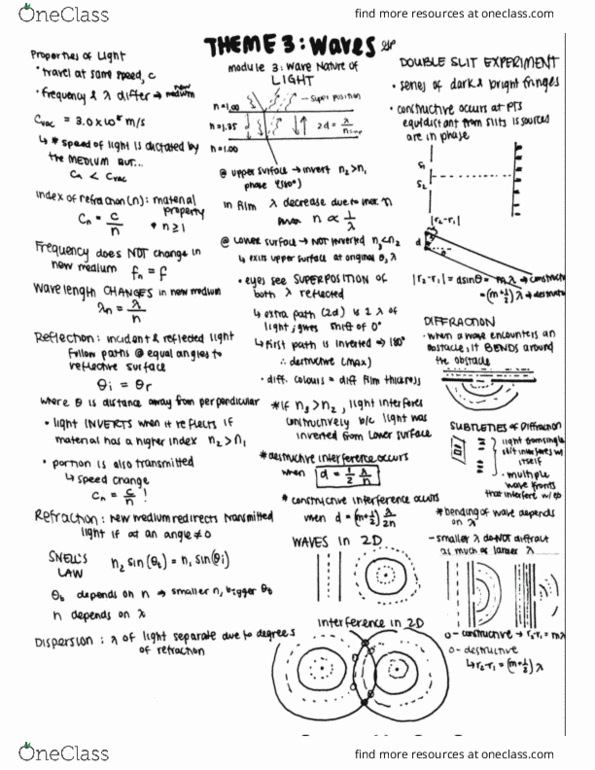 OneClass
find more resources at oneclass.com
THEME 3: Waves
Properties of Light
• travel at same speed, c
• frequency & λ differ → new medium
Cvac = 3.0 x 10⁸ m/s
↳ * speed of light is dictated by
the MEDIUM BUT...
Cn < Cvac
index of refraction (n): material
property
Cn = c/n • n≥1
Frequency does NOT change in
new medium fn = f
Wavelength CHANGES in new medium
λn = λ/n
Reflection: incident & reflected light
follow paths @ equal angles to
reflective surface
θi = θr
where θ is distance away from perpendicular
• light INVERTS when it reflects if
material has a higher index n₂>n₁
• portion is also transmitted
↳ speed change
Cn = c/n !
Refraction: new medium redirects transmitted
light if at an angle ≠ 0
SNELL'S
LAW
n₂ sin(θt) = n₁ sin(θi)
θt depends on n → smaller n, bigger θt
n depends on λ
DISPERSION: λ of light separate due to degrees
of refraction
module 3: Wave Nature of
LIGHT
n=1.00
super position
n=1.35
2d = λ/
n=1.00
@ upper surface → invert n₂>n₁
phase (180°)
in Film λ decrease due to incr. n
n ∝ 1/λ
@ Lower surface → NOT inverted n₃<n₂
↳ exits upper surface at original θ, λ
• eyes see SUPERPOSITION of
both λ reflected
↳ extra path (2d) is 2 λ of
light; gives shift of 0°
↳ First path is inverted → 180°
∴ destructive (max)
• diff. colours = diff film thickness
* If n₃>n₂, light interferes
constructively b/c light was
inverted from Lower surface
* destructive interference occurs
when d = 1/2 λ/n
* constructive interference occurs
when d = (m+½) λ/2n
WAVES in 2D
interference in 2D
DOUBLE SLIT EXPERIMENT
• series of dark & bright fringes
• constructive occurs at PTS
equidistant from slits is sources
are in phase
S₁
S₂
|r₂-r₁|
d
|r₂-r₁| = dsinθ = mλ → construc
= (m+½)λ → destru
DIFFRACTION
• when a wave encounters an
obstacle, it BENDS around
the obstacle
SUBTLETIES of Diffraction
light from single
slit interferes w
itself
• multiple
wave fronts
that interfere w/
* bending of wave depends
on λ
- smaller λ do NOT diffract
as much as larger λ
o- constructive → r₂-r₁ = mλ
o- destructive
↳ r₂-r₁ = (m+½)λ
OneClass
find more resources at oneclass.com